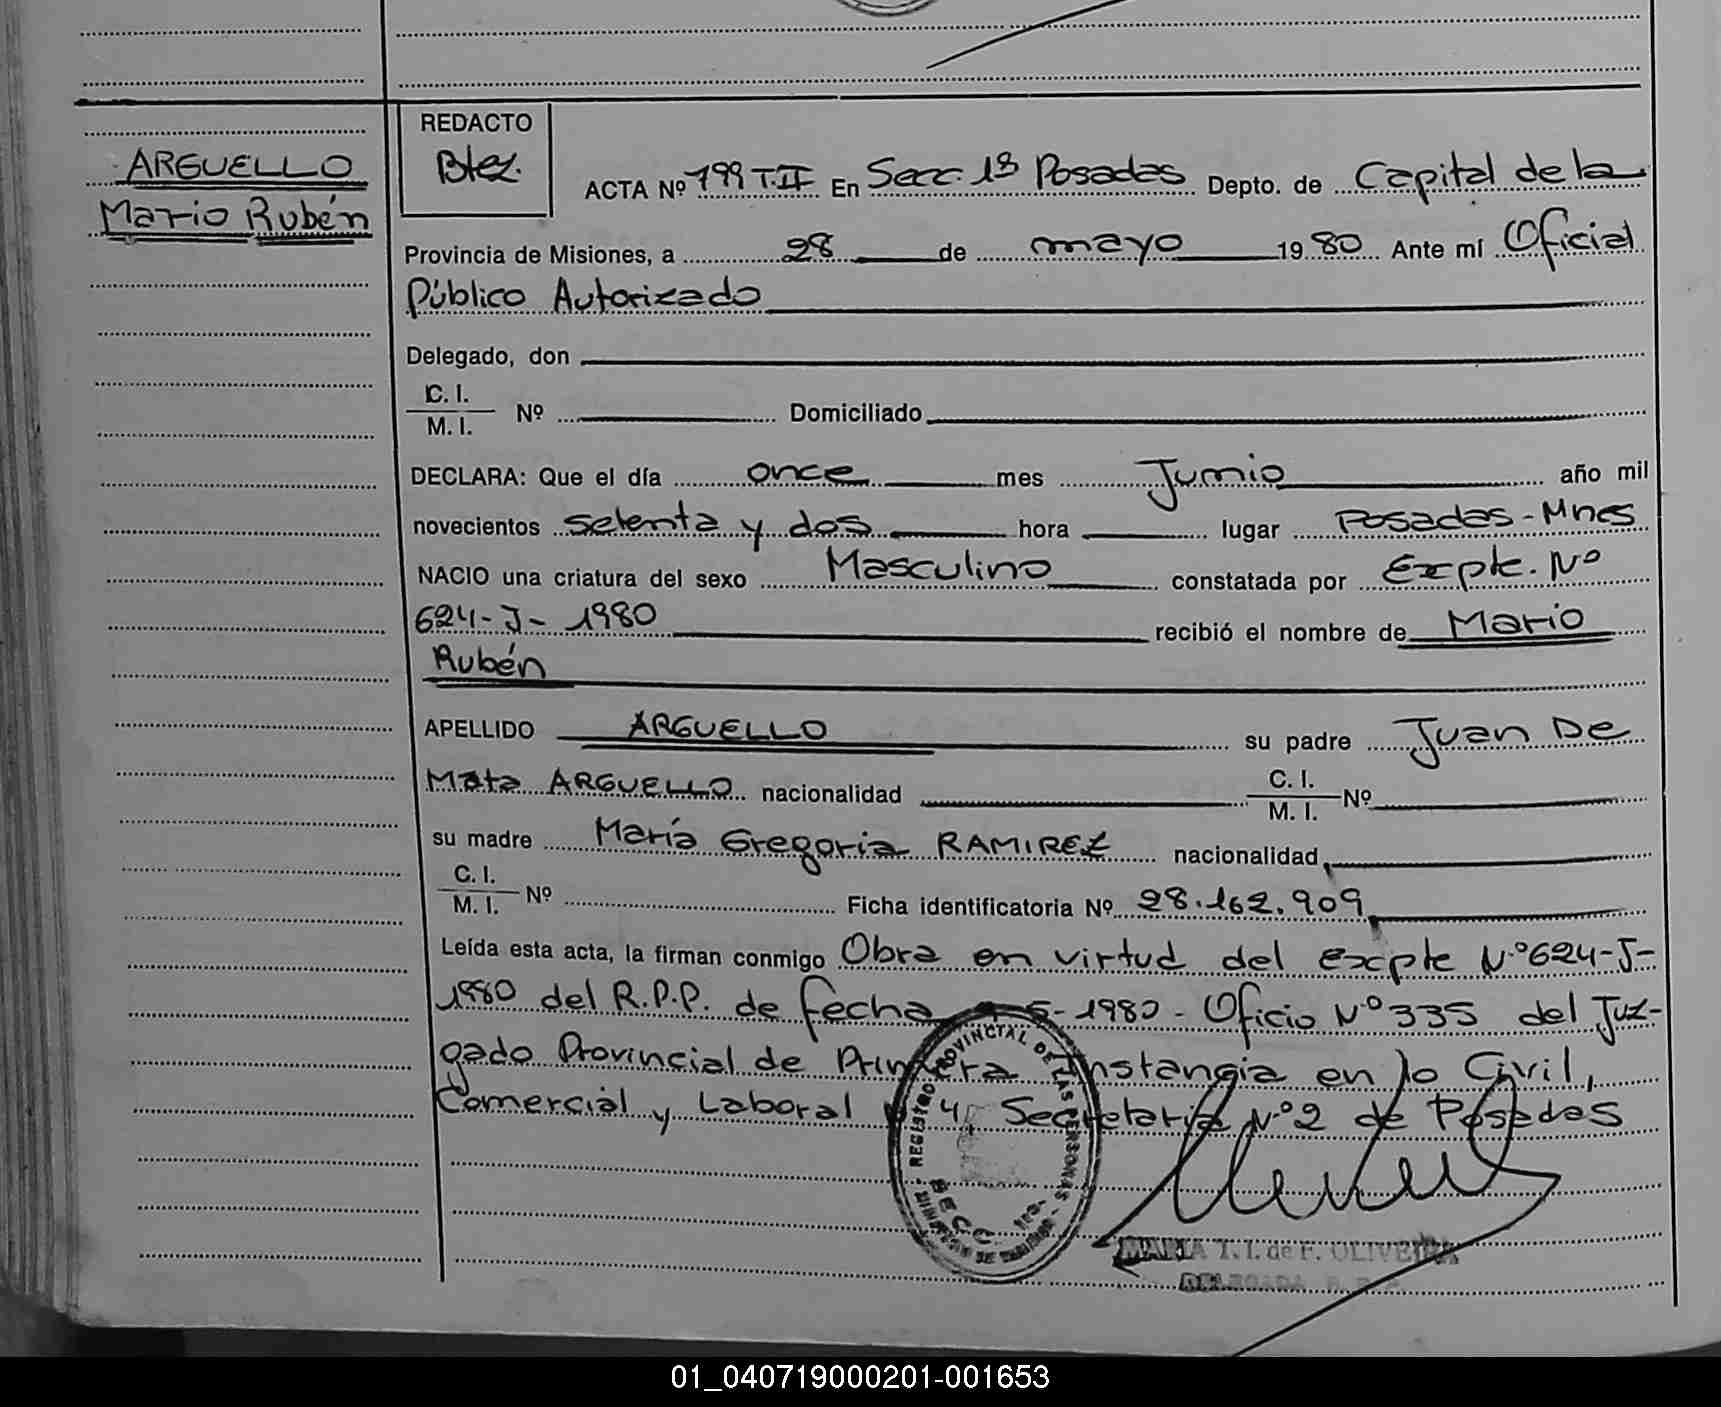 ARGUELLO
Mario Rubén
REDACTO
Btez.
ACTA Nº 199 T.II En Secc. 1ª Posadas Depto. de Capital de la
Provincia de Misiones, a 28 de mayo 1980 Ante mí Oficial
Público Autorizado
Delegado, don
C. I.
M. I. Nº Domiciliado
DECLARA: Que el día once mes Junio año mil
novecientos setenta y dos hora lugar Posadas-Mnes
NACIO una criatura del sexo Masculino constatada por Expte. Nº
624-J-1980 recibió el nombre de Mario
Rubén
APELLIDO ARGUELLO su padre Juan De
Mata ARGUELLO nacionalidad C. I. M. I. Nº
su madre María Gregoria RAMIREZ nacionalidad
C. I.
M. I. Nº Ficha identificatoria Nº 28.162.909
Leída esta acta, la firman conmigo Obra en virtud del Expte Nº 624-J-
1980 del R.P.P. de fecha 5-1980- Oficio Nº 335 del Juz-
gado Provincial de Primera Instancia en lo Civil,
Comercial y Laboral 4 Secretaria Nº 2 de Posadas
REGISTRO PROVINCIAL DE LAS PERSONAS
SECC. 1ra.
MARIA I. I. de F. OLIVEIRA
DELEGADA
01_040719000201-001653